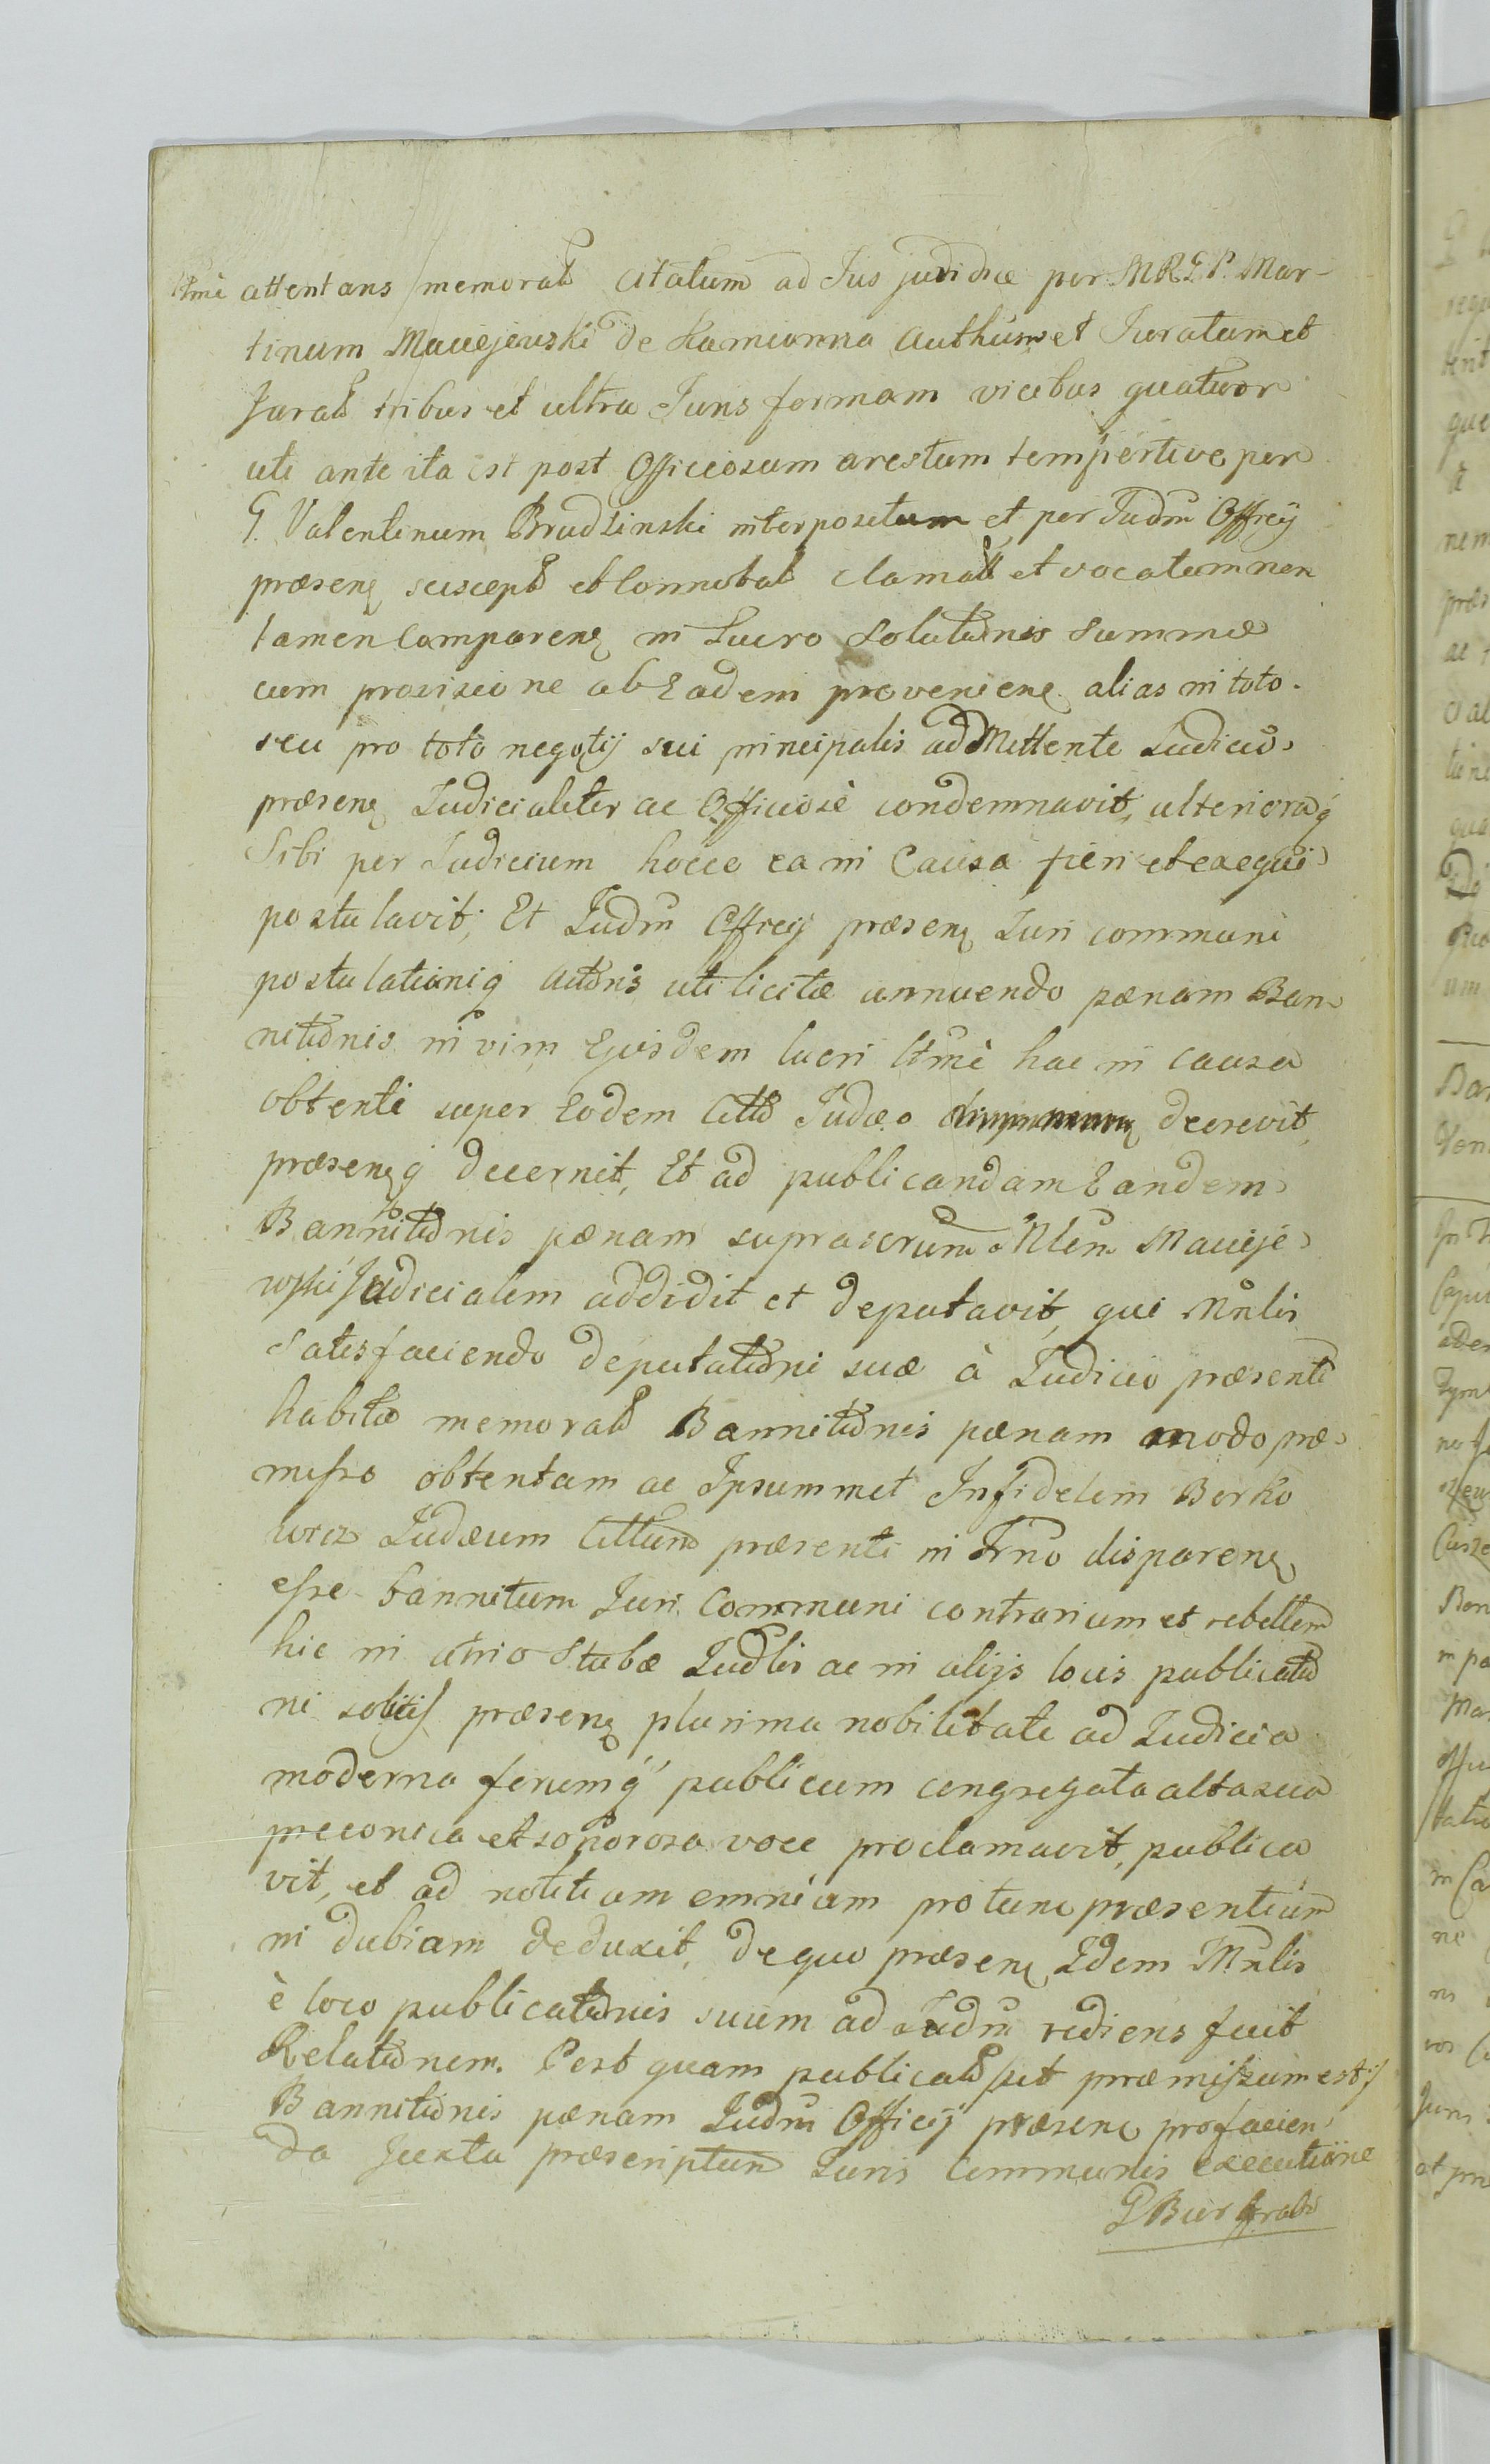 ltmè attentans memorat Citatum ad Jus juridice per MRGP. Mar-
tinum Maciejewski de Kamionna Authum et Juratum et
Jurat tribus et ultra Juris formam vicibus quatuor
uti ante ita est post Officiosum arestum tempestive per
G. Valentinum Brudzinski interpositum et per Judm Offcij
præsens suscept et connotat clamat et vocatum non
tamen Comparens in Lucro Solutionis Summæ
cum provisione ab Eadem proveniens alias in toto
seu pro toto negotij sui principalis adMittente Judicio
præsens Judicialiter ac Officiosè condemnavit, ulterioraq
Sibi per Judicium hocce ea in Causa fieri et exequi
postulavit; Et Judm Offcij præsens Juri communi
postulationiq Actoris uti licitæ annuendo pænam Ban-
nitionis in vim Ejusdem lucri ltmè hac in causa
obtenti super Eodem Citto Judæo decrevit,
præsensq decernit, Et ad publicandam Eandem
Bannitionis pænam suprascrum Mlem Macieje-
wski Judicialem addidit et deputavit, qui Mnlis
Satisfaciendo deputationi suæ à Judicio præsenti
habitæ memorat Bannitionis pænam modo præ-
misso obtentam ac Ipsummet Infidelem Berko
wicz Judæum Cittum præsenti in Trno disparens
esse bannitum Juri Communi contrarium et rebellem
hic in atrio Stubæ Judlis ac in alijs locis publicatio
ni solitis præsens plurima nobilitate ad Judicia
moderna forumq publicum congregata alta sua
preconica et sonorosa voce proclamavit, publica
vit, et ad notitiam omniam protunc præsentium
in dubiam deduxit, de quo præsens Idem Mnlis
è loco publicationis suum ad Judm rediens fecit
Relationem. Post quam publicat sut præmissum est
Bannitionis pænam Judm Officij præsens profacien
da Juxta præscriptum Juris Communis executione